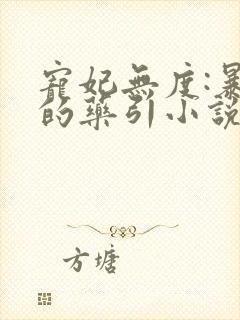 寵妃無度:暴
的藥引小說
方塘